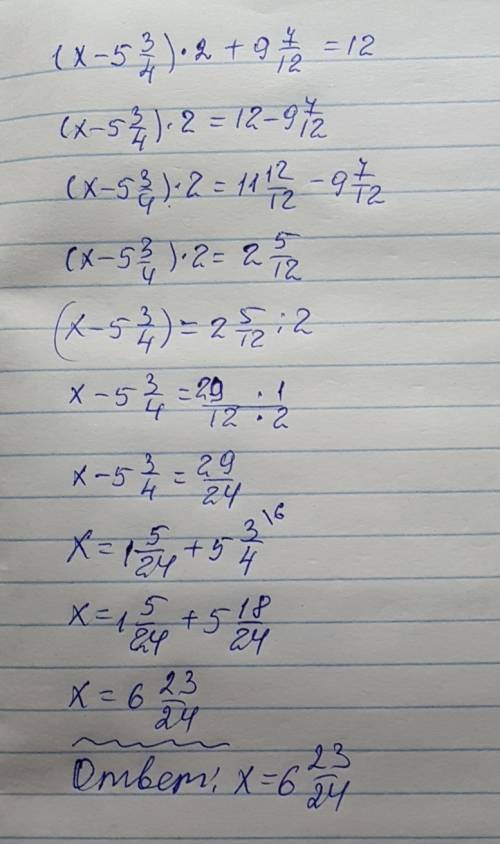 (x-5 3/4)·2+9 7/12=12
(x-5 3/4)·2=12-9 7/12
(x-5 3/4)·2=11 12/12-9 7/12
(x-5 3/4)·2=2 5/12
(x-5 3/4)=2 5/12:2
x-5 3/4=29·1/12·2
x-5 3/4=29/24
x=1 5/24+5 3/4\6
x=1 5/24+5 18/24
x=6 23/24
Ответ: x=6 23/24